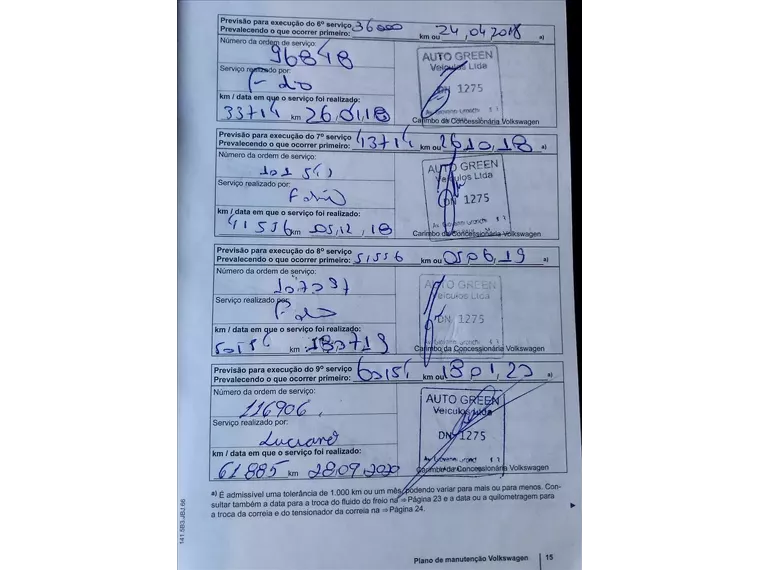 Previsão para execução do 6º serviço
Prevalecendo o que ocorrer primeiro: 36000 km ou 24,04 2018 a)
Número da ordem de serviço:
96848
Serviço realizado por:
km / data em que o serviço foi realizado:
33714 km 26.01.18
AUTO GREEN
Veículos Ltda
DN 1275
Carimbo da Concessionária Volkswagen
Previsão para execução do 7º serviço
Prevalecendo o que ocorrer primeiro: 43714 km ou 26 10, 18 a)
Número da ordem de serviço:
101541
Serviço realizado por:
km / data em que o serviço foi realizado:
41556 km 05,12,18
AUTO GREEN
Veículos Ltda
DN 1275
Carimbo da Concessionária Volkswagen
Previsão para execução do 8º serviço
Prevalecendo o que ocorrer primeiro: 51556 km ou 05,06,19 a)
Número da ordem de serviço:
Serviço realizado por:
km / data em que o serviço foi realizado:
50154 km 180719
AUTO GREEN
Veículos Ltda
DN 1275
Carimbo da Concessionária Volkswagen
Previsão para execução do 9º serviço
Prevalecendo o que ocorrer primeiro: 60154 km ou 18,01,20 a)
Número da ordem de serviço:
116906
Serviço realizado por:
Luciano
km / data em que o serviço foi realizado:
61.885 km 28.09.2020
AUTO GREEN
Veículos Ltda
DN 1275
Carimbo da Concessionária Volkswagen
a) É admissível uma tolerância de 1.000 km ou um mês, podendo variar para mais ou para menos. Con-
sultar também a data para a troca do fluido do freio na ⇒ Página 23 e a data ou a quilometragem para
a troca da correia e do tensionador da correia na ⇒ Página 24.
141.5B3.JBJ.66
Plano de manutenção Volkswagen 15